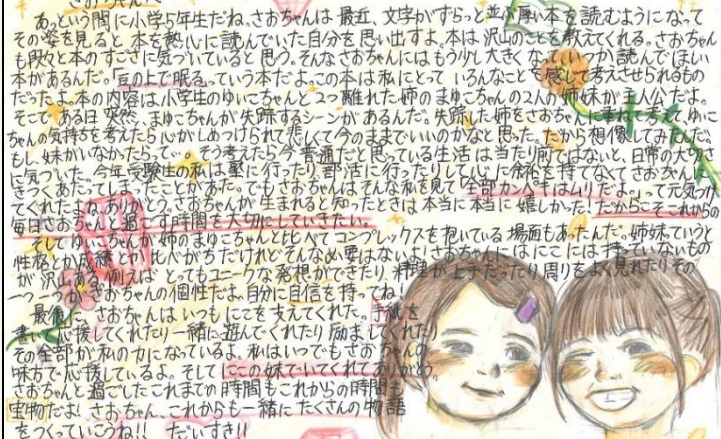 さおちゃんへ
あっという間に小学5年生だね。さおちゃんは最近、文字がずらっと並ぶ厚い本を読むようになって
その姿を見ると、本を熱心に読んでいた自分を思い出すよ。本は沢山のことを教えてくれる。さおちゃん
も段々と本のすごさに気づいていると思う。そんなさおちゃんにはもう少し大きくなったらいつか読んでほしい
本があるんだ。「豆の上で眠る」っていう本だよ。この本は私にとっていろんなことを感じて考えさせられるもの
だったよ。本の内容は小学生のゆいこちゃんと2つ離れた姉のまゆこちゃんの2人の姉妹が主人公だよ。
そこである日突然、まゆこちゃんが失踪するシーンがあるんだ。失踪した姉をさおちゃんに重ねて考えて、ゆいこ
ちゃんの気持ちを考えたら心がしめつけられて悲しくて今のままでいいのかなと思った。だから想像してみたんだ。
もし妹がいなかったらって。そう考えたら今普通だと思っている生活は当たり前ではないと、日常の大切さ
に気づいた。今年受験生の私は塾に行ったり、部活に行ったりして心に余裕を持てなくてさおちゃんに
きつくあたってしまったことがあった。でもさおちゃんはそんな私を見て「全部カンペキはムリだよ。」って元気づけ
てくれたよね。ありがとう。さおちゃんが生まれると知ったときは本当に本当に嬉しかった！だからこそこれからの
毎日さおちゃんと過ごす時間を大切にしていきたい。
そしてゆいこちゃんが姉のまゆこちゃんと比べてコンプレックスを抱いている場面もあったんだ。姉妹っていうと
性格とか成績とか比べがちだけどそんな必要はないよ。さおちゃんにはにこには持っていないもの
が沢山ある。例えばとってもユニークな発想ができたり、料理が上手だったり周りをよく見れたりその
一つ一つがさおちゃんの個性だよ。自分に自信を持ってね！
最後に、さおちゃんはいつもにこを支えてくれた。手紙を
書いて応援してくれたり一緒に遊んでくれたり励ましてくれたり
その全部が私の力になっているよ。私はいつでもさおちゃんの
味方で応援しているよ。そしてにこの妹でいてくれてありがとう。
さおちゃんと過ごしたこれまでの時間もこれからの時間も
宝物だよ！さおちゃん、これからも一緒にたくさんの物語
をつくっていこうね!! だいすき!!